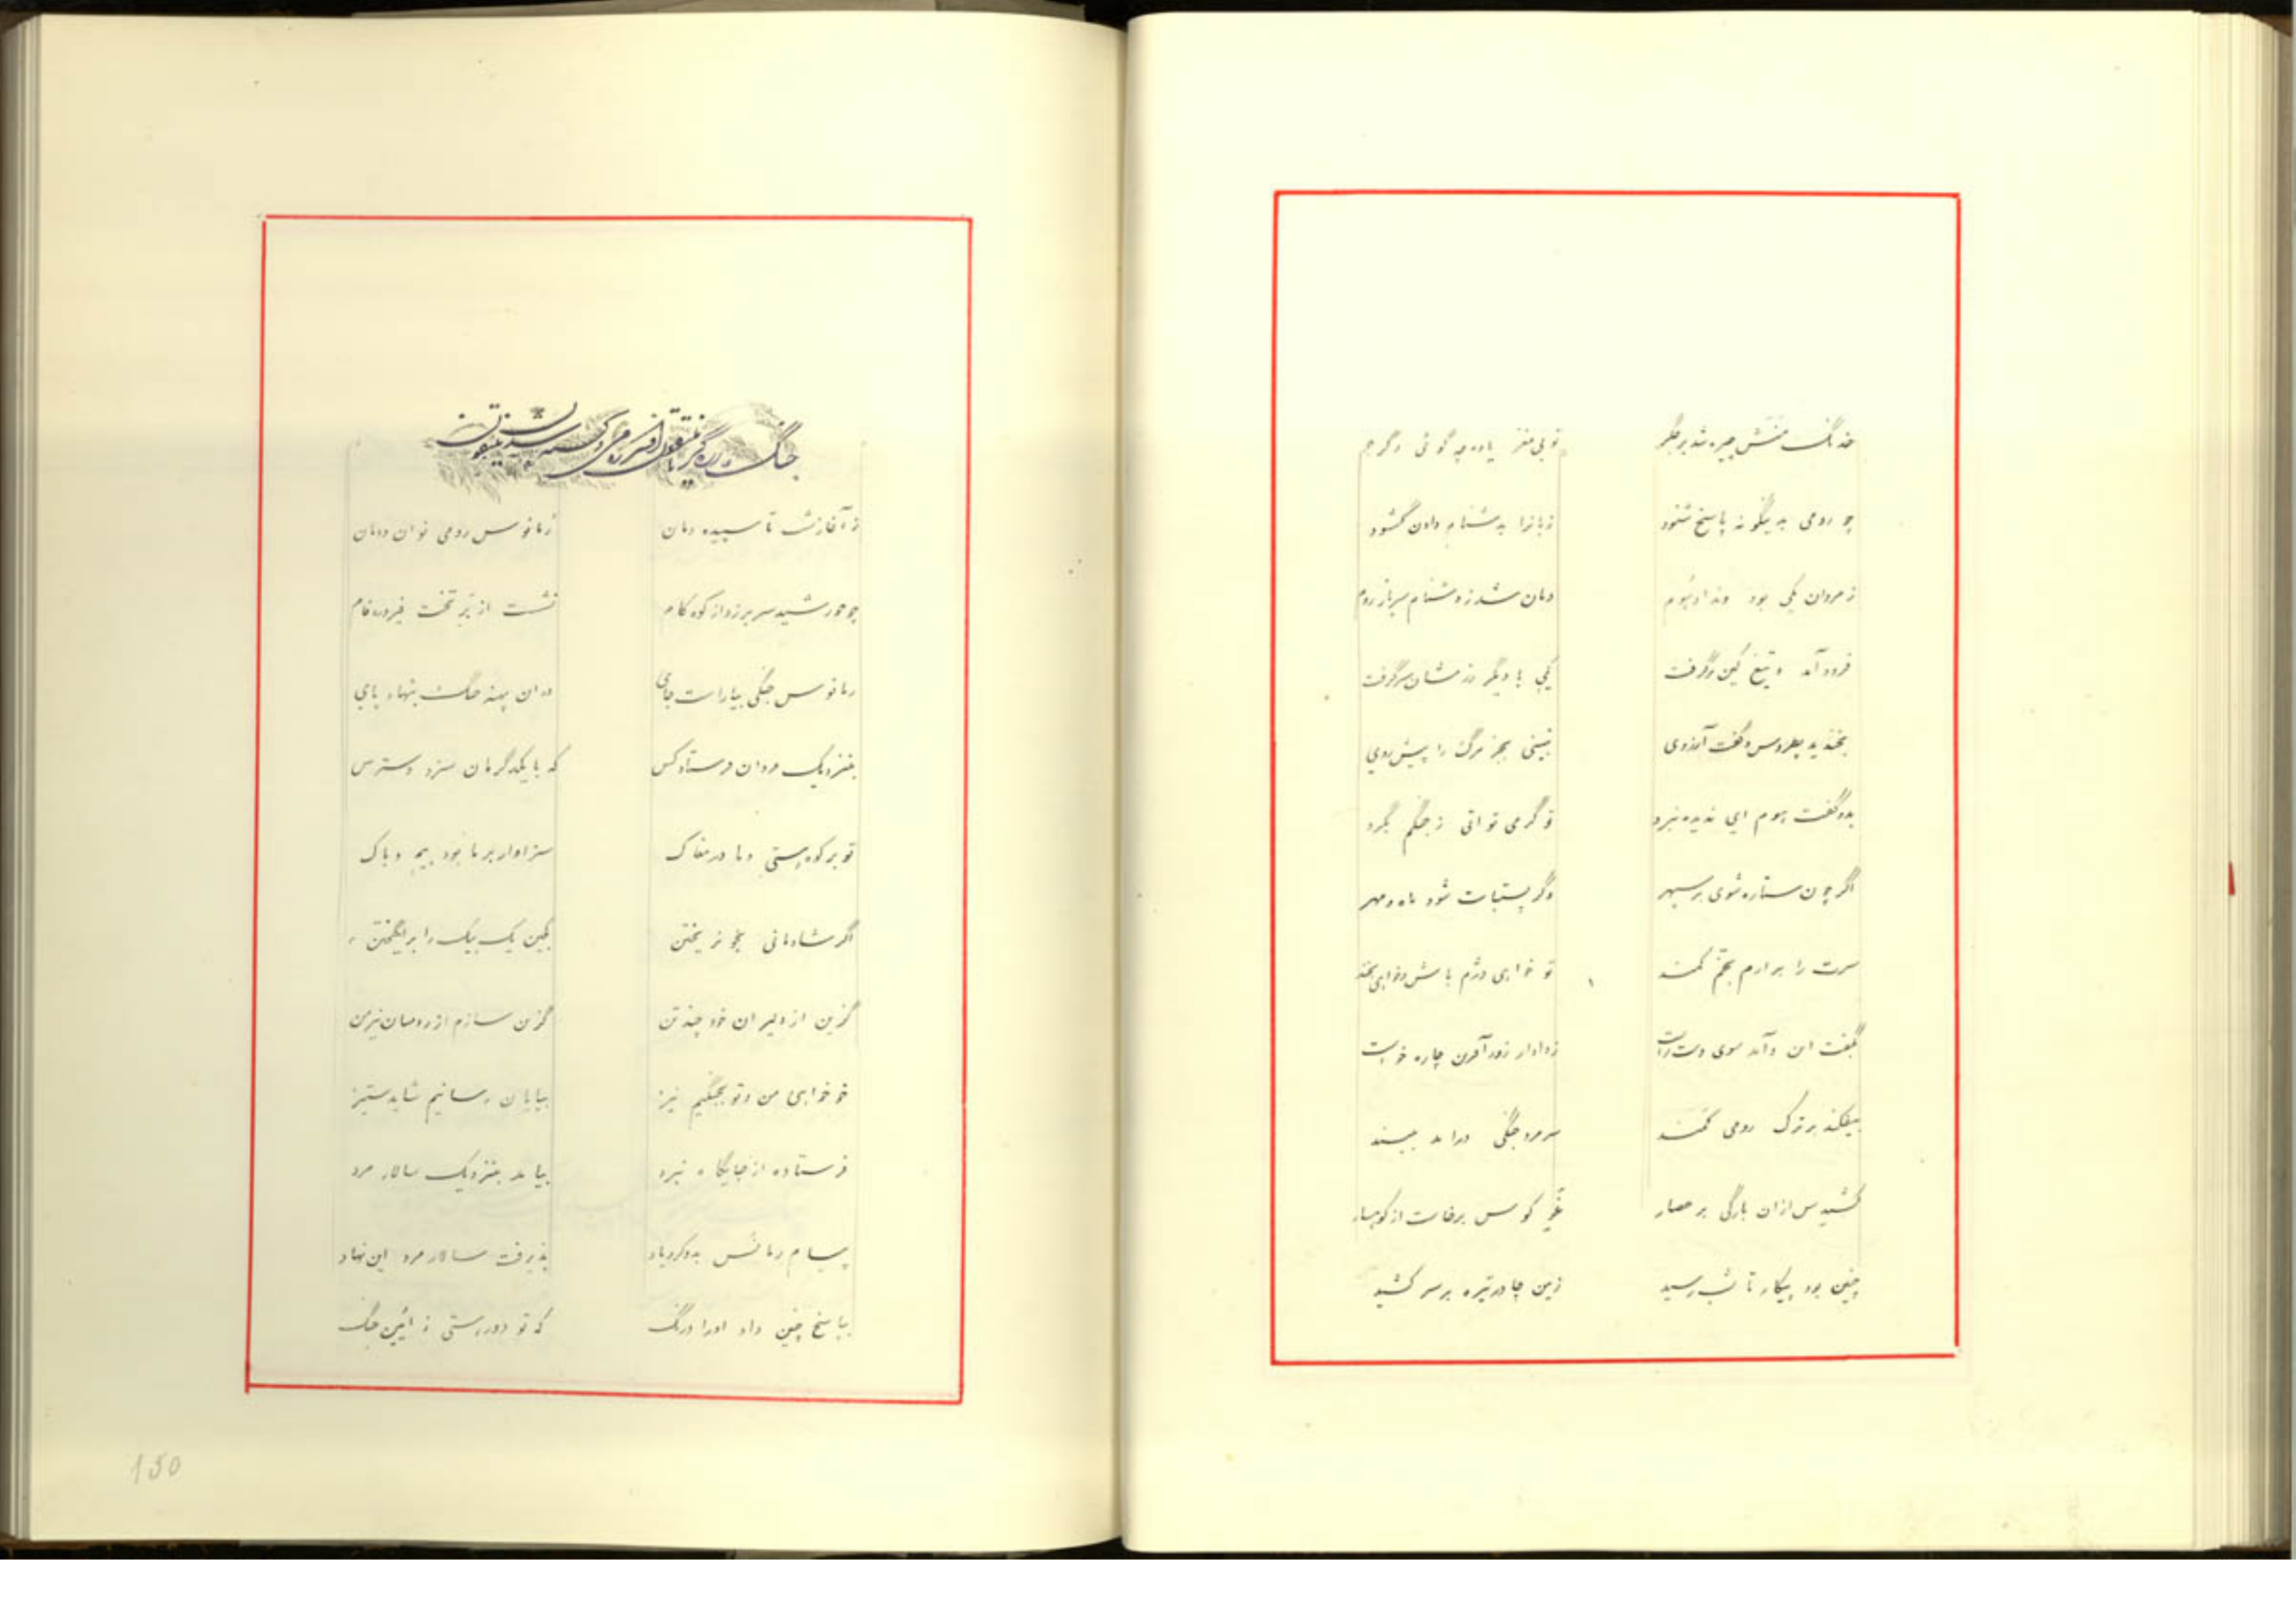 چو رومی به نیگونه پاسخ شنود    زبانرا بدشنام دادن گشود
ز مردان یکی بود    دمان شد ز دشنام سرباز روم
فرود آمد و تیغ کین برگرفت    یکی با دیگر رزمشان سرگرفت
بخندید پطروس و گفت آرزوی    نبینی بجز مرگ را پیش روی
بدو گفت بهوم ای ندیده نبرد    تو گر می توانی ز جنگم بگرد
اگر چون ستاره شوی بر سپهر    وگر پشتبانت شود ماه و مهر
سرت را برارم بخم کمند    تو خواهی دژم باش و خواهی بخند
بگفت این و آمد سوی دست راست    ز دادار زورآفرین چاره خواست
بیفکند بر ترک رومی کمند    سر مرد جنگی درامد ببند
کشیدس ازان بارگی بر حصار    غو کوس برخاست از کوهسار
چنین بود پیکار تا شب رسید    زمین چادر تیره بر سر کشید
جنگ
ز آغاز شب تا سپیده دمان    رمانوس رومی نوان و دمان
چو خورشید سر بر زد از کوه کام    نشست از بر تخت فیروزه فام
رمانوس جنگی بیاراست جای    دران پهنه جنگ بنهاد پای
بنزدیک مردان فرستاد کس    که با یکدگرمان سزد دسترس
تو بر کوه پستی و ما در مغاک    سزاوار بر ما بود بیم و باک
اگر شادمانی بخو نریختن    بکین یک بیک را برانگیختن
گزین از دلیران خود چند تن    گزین سازم از رومیان نیز من
خو خواهی من و تو بجنگیم نیز    بپایان رسانیم شاید ستیز
فرستاده از جایگاه نبرد    بیامد بنزدیک سالار مرد
پیام رمانس بدو کرد یاد    پذیرفت سالار مرد این نهاد
بپاسخ چنین داد اورا درنگ    که تو دور رستی ز آئین جنگ
150